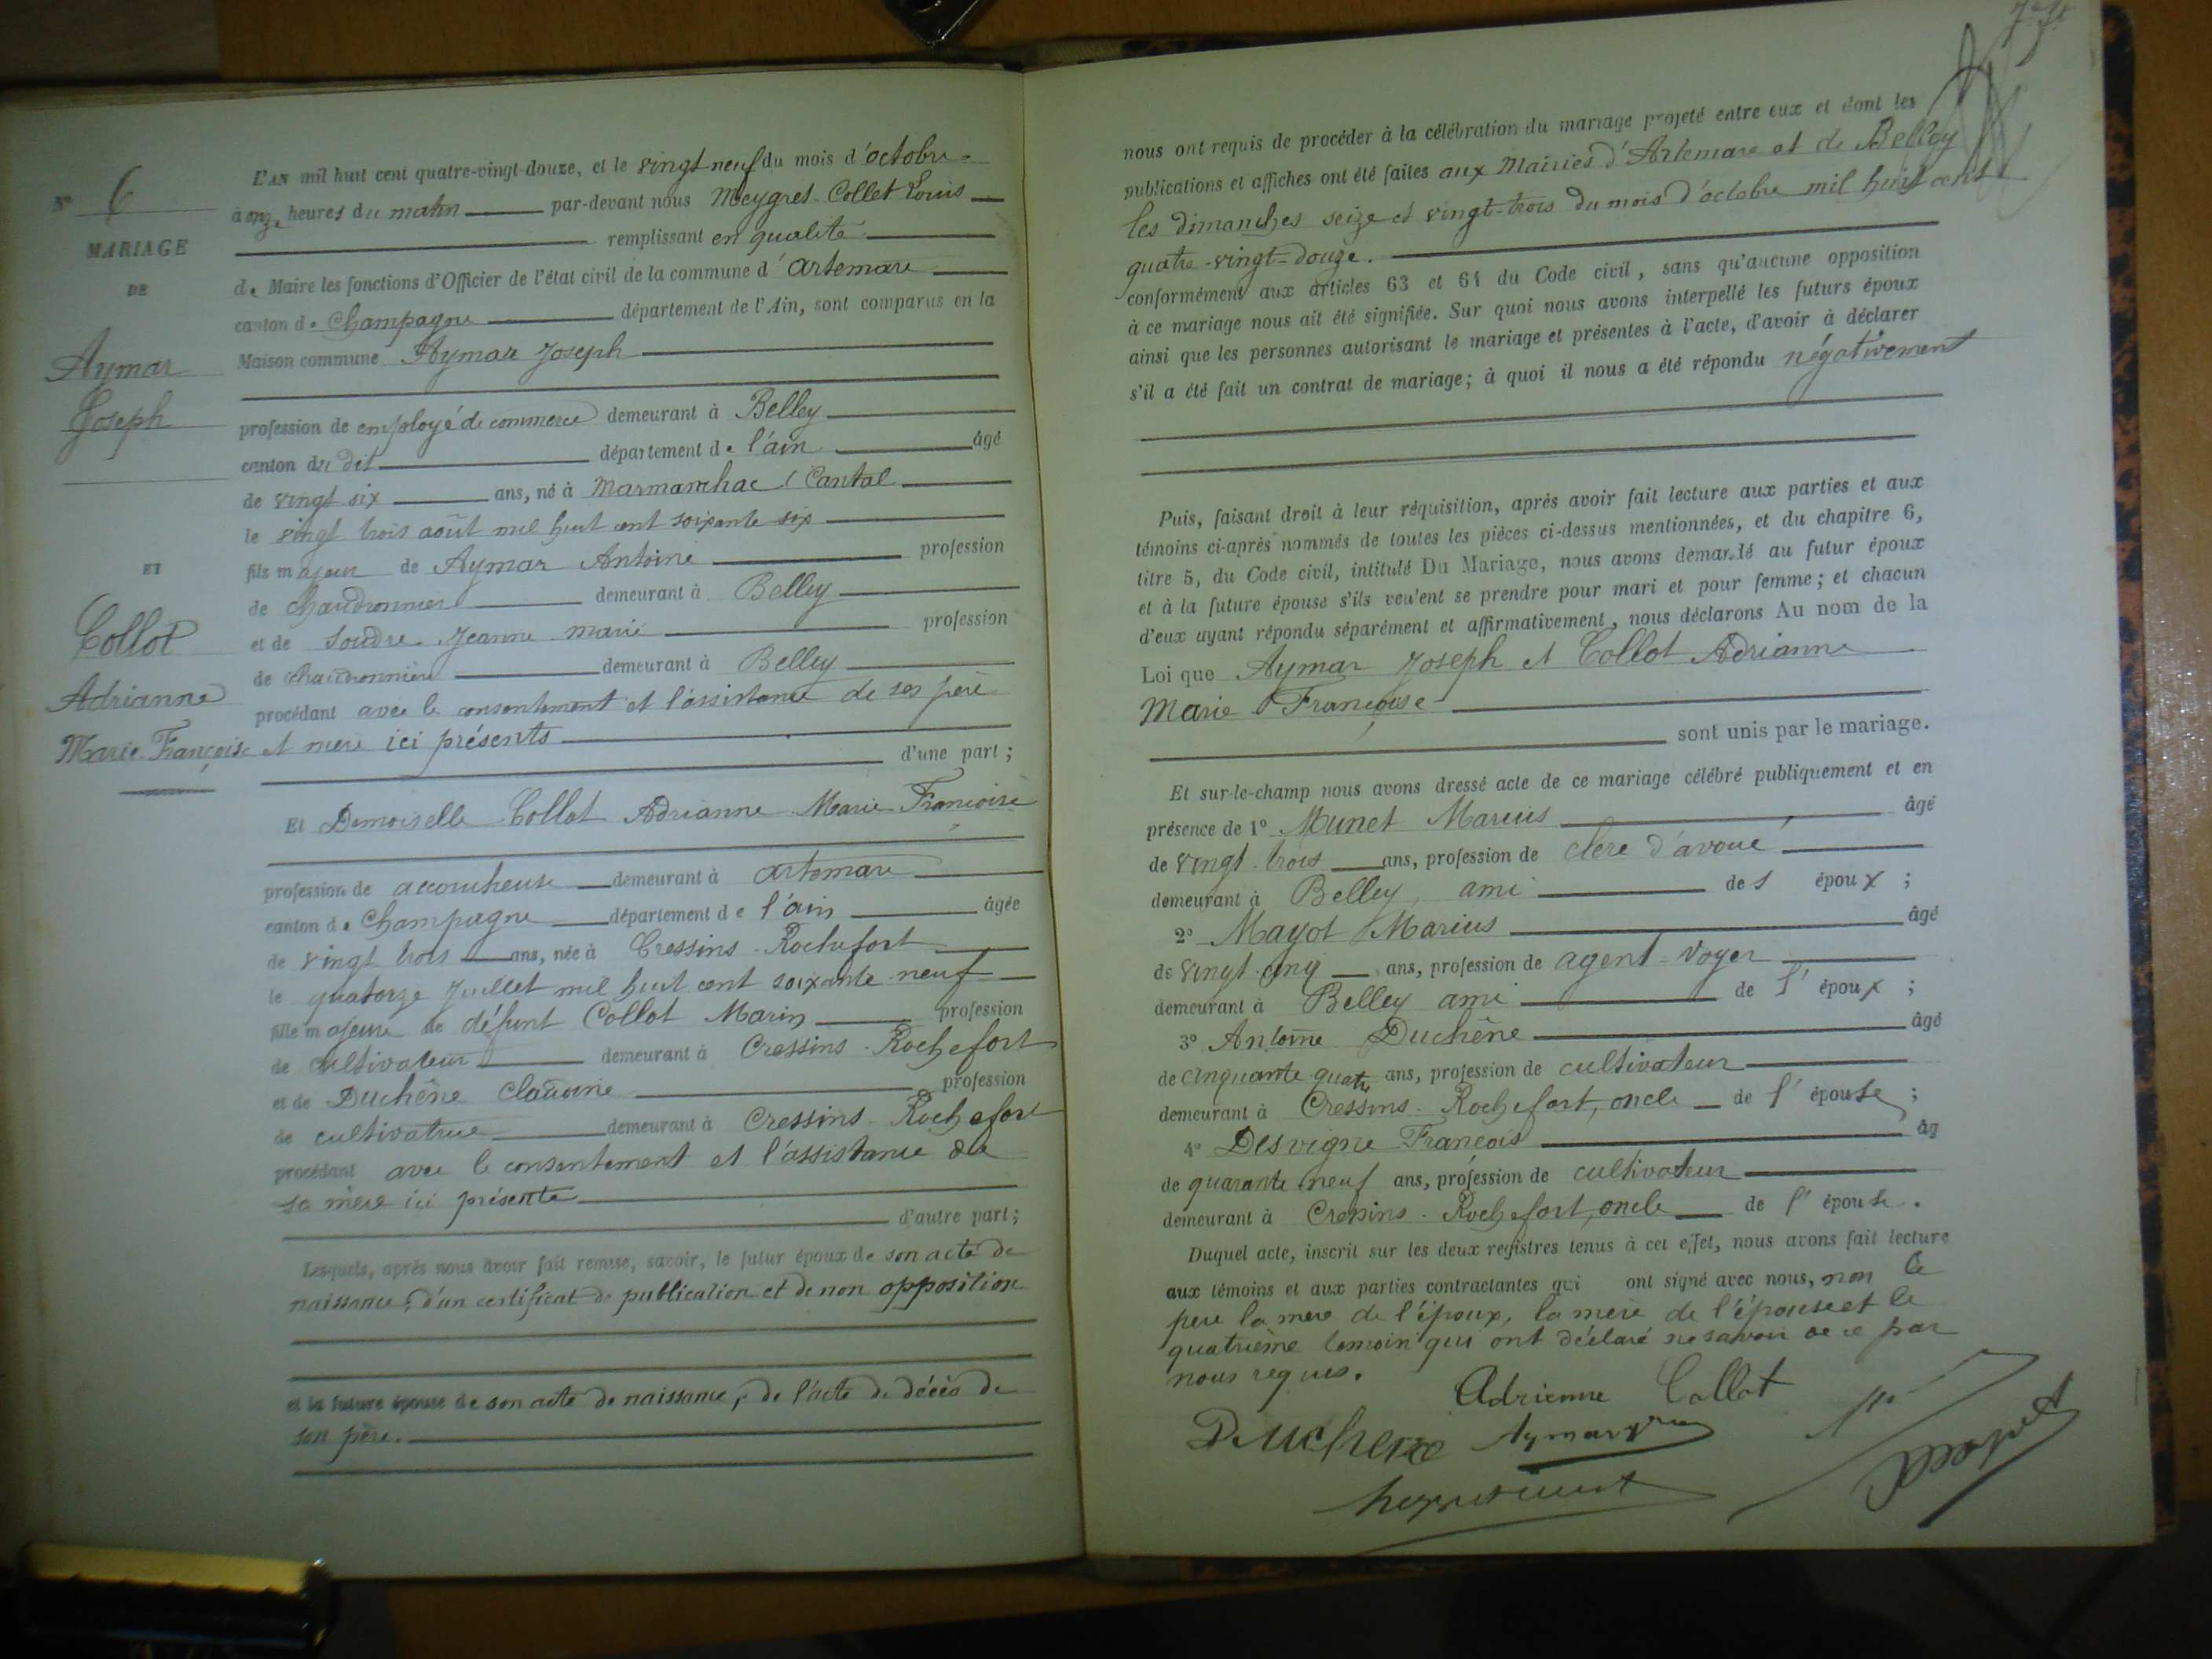 N° 6
MARIAGE
DE
Aymar
Joseph
ET
Collot
Adrianne
Marie Françoise
L'AN mil huit cent quatre-vingt-douze, et le vingt neuf du mois d'octobre
à onze heures du matin par-devant nous Meygret-Collet Louis
remplissant en qualité
de Maire les fonctions d'Officier de l'état civil de la commune d'artemare
canton de Champagne département de l'Ain, sont comparus en la
Maison commune Aymar Joseph
profession de employé de commerce demeurant à Belley
canton du dit département de l'ain âgé
de vingt six ans, né à Marmanhac (Cantal
le vingt trois août mil huit cent soixante six
fils majeur de Aymar Antoine profession
de chaudronnier demeurant à Belley
et de Soudre Jeanne marie profession
de chaudronnière demeurant à Belley
procédant avec le consentement et l'assistance de ses père
et mère ici présents
d'une part;
Et Demoiselle Collot Adrianne Marie Françoise
profession de accoucheuse demeurant à artemare
canton de Champagne département de l'ain âgée
de vingt trois ans, née à Cressins-Rochefort
le quatorze juillet mil huit cent soixante neuf
fille majeure de défunt Collot Marin profession
de cultivateur demeurant à Cressins-Rochefort
et de Duchêne Claudine profession
de cultivatrice demeurant à Cressins-Rochefort
procédant avec le consentement et l'assistance de
sa mère ici présente
d'autre part;
Lesquels, après nous avoir fait remise, savoir, le futur époux de son acte de
naissance, d'un certificat de publication et de non opposition
et la future épouse de son acte de naissance, de l'acte de décès de
son père.
nous ont requis de procéder à la célébration du mariage projeté entre eux et dont les
publications et affiches ont été faites aux Mairies d'Artemare et de Belley
les dimanches seize et vingt-trois du mois d'octobre mil huit cent
quatre-vingt-douze.
conformément aux articles 63 et 64 du Code civil, sans qu'aucune opposition
à ce mariage nous ait été signifiée. Sur quoi nous avons interpellé les futurs époux
ainsi que les personnes autorisant le mariage et présentes à l'acte, d'avoir à déclarer
s'il a été fait un contrat de mariage; à quoi il nous a été répondu négativement
Puis, faisant droit à leur réquisition, après avoir fait lecture aux parties et aux
témoins ci-après nommés de toutes les pièces ci-dessus mentionnées, et du chapitre 6,
titre 5, du Code civil, intitulé Du Mariage, nous avons demandé au futur époux
et à la future épouse s'ils veulent se prendre pour mari et pour femme; et chacun
d'eux ayant répondu séparément et affirmativement, nous déclarons Au nom de la
Loi que Aymar Joseph et Collot Adrianne
Marie Françoise
sont unis par le mariage.
Et sur-le-champ nous avons dressé acte de ce mariage célébré publiquement et en
présence de 1° Munet Marius âgé
de vingt-trois ans, profession de clerc d'avoué
demeurant à Belley, ami des époux;
2° Mayot Marius âgé
de vingt-cinq ans, profession de agent-voyer
demeurant à Belley ami de l'époux;
3° Antoine Duchêne âgé
de cinquante quatre ans, profession de cultivateur
demeurant à Cressins-Rochefort, oncle de l'épouse;
4° Desvigne François âg
de quarante neuf ans, profession de cultivateur
demeurant à Cressins-Rochefort, oncle de l'épouse.
Duquel acte, inscrit sur les deux registres tenus à cet effet, nous avons fait lecture
aux témoins et aux parties contractantes qui ont signé avec nous, non le
père la mère de l'époux, la mère de l'épouse et le
quatrième témoin qui ont déclaré ne savoir de ce par
nous requis.
Adrienne Collot
Duchene Aymar